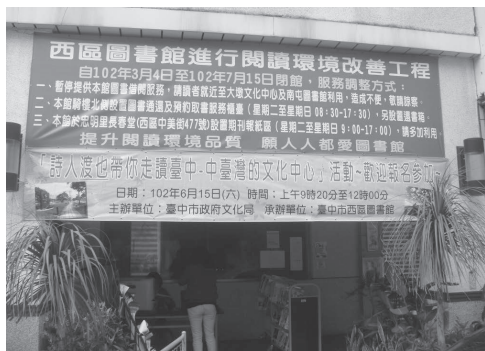 西區圖書館進行閱讀環境改善工程
自102年3月4日至102年7月15日閉館，服務調整方式：
一、暫停提供本館圖書借閱服務，請讀者就近至大墩文化中心及南屯圖書館利用，造成不便，敬請諒察。
二、本館騎樓北側設置圖書通還及預約取書服務櫃臺（星期二至星期日08:30-17:30），另設置還書箱。
三、本館於忠明里長春堂(西區中美街477號)設置期刊報紙區（星期二至星期日9:00-17:00），請多加利用。
提升閱讀環境品質 願人人都愛圖書館
「詩人渡也帶你走讀臺中-中臺灣的文化中心」活動~歡迎報名參加~
日期：102年6月15日(六) 時間：上午9時20分至12時00分
主辦單位：臺中市政府文化局 承辦單位：臺中市西區圖書館